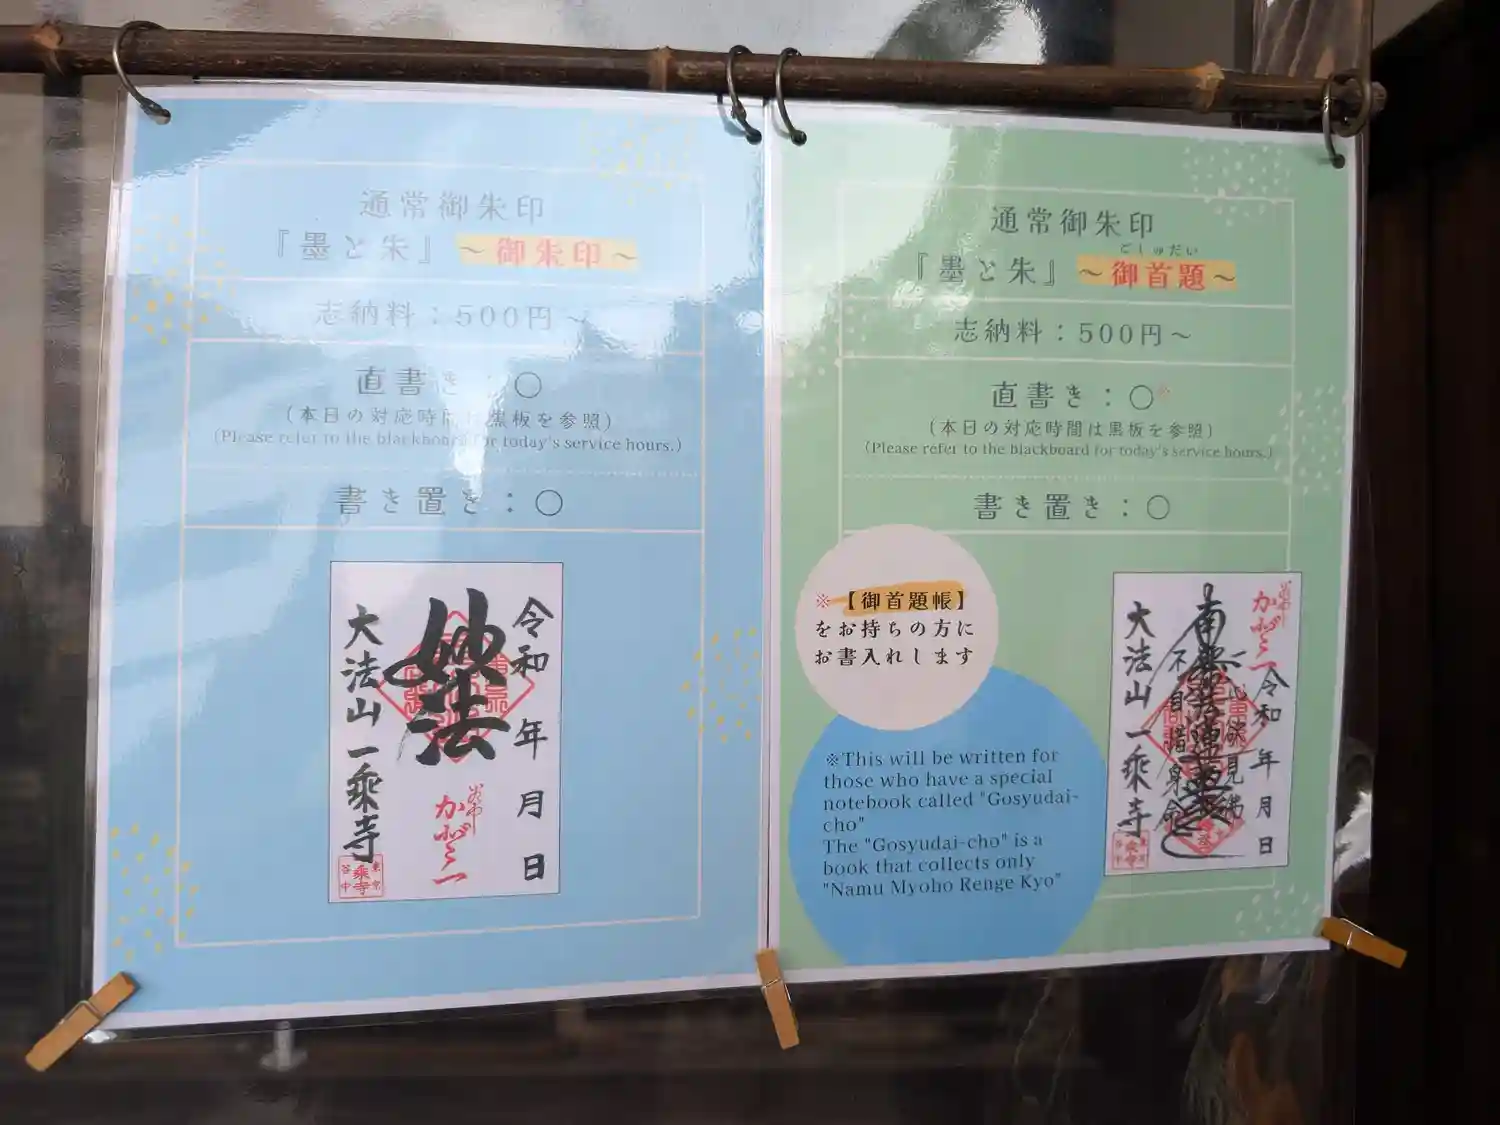 通常御朱印
『墨と朱』～御朱印～
志納料：500円～
直書き：〇
（本日の対応時間は黒板を参照）
(Please refer to the blackboard for today's service hours.)
書き置き：〇
令和 年 月 日
妙法
大法山一乘寺
通常御朱印
ごしゅだい
『墨と朱』～御首題～
志納料：500円～
直書き：〇※
（本日の対応時間は黒板を参照）
(Please refer to the blackboard for today's service hours.)
書き置き：〇
※【御首題帳】
をお持ちの方に
お書入れします
※This will be written for
those who have a special
notebook called "Gosyudai-
cho"
The "Gosyudai-cho" is a
book that collects only
"Namu Myoho Renge Kyo"
令和 年 月 日
一心欲見佛
南無妙法蓮華経
不自惜身命
大法山一乘寺